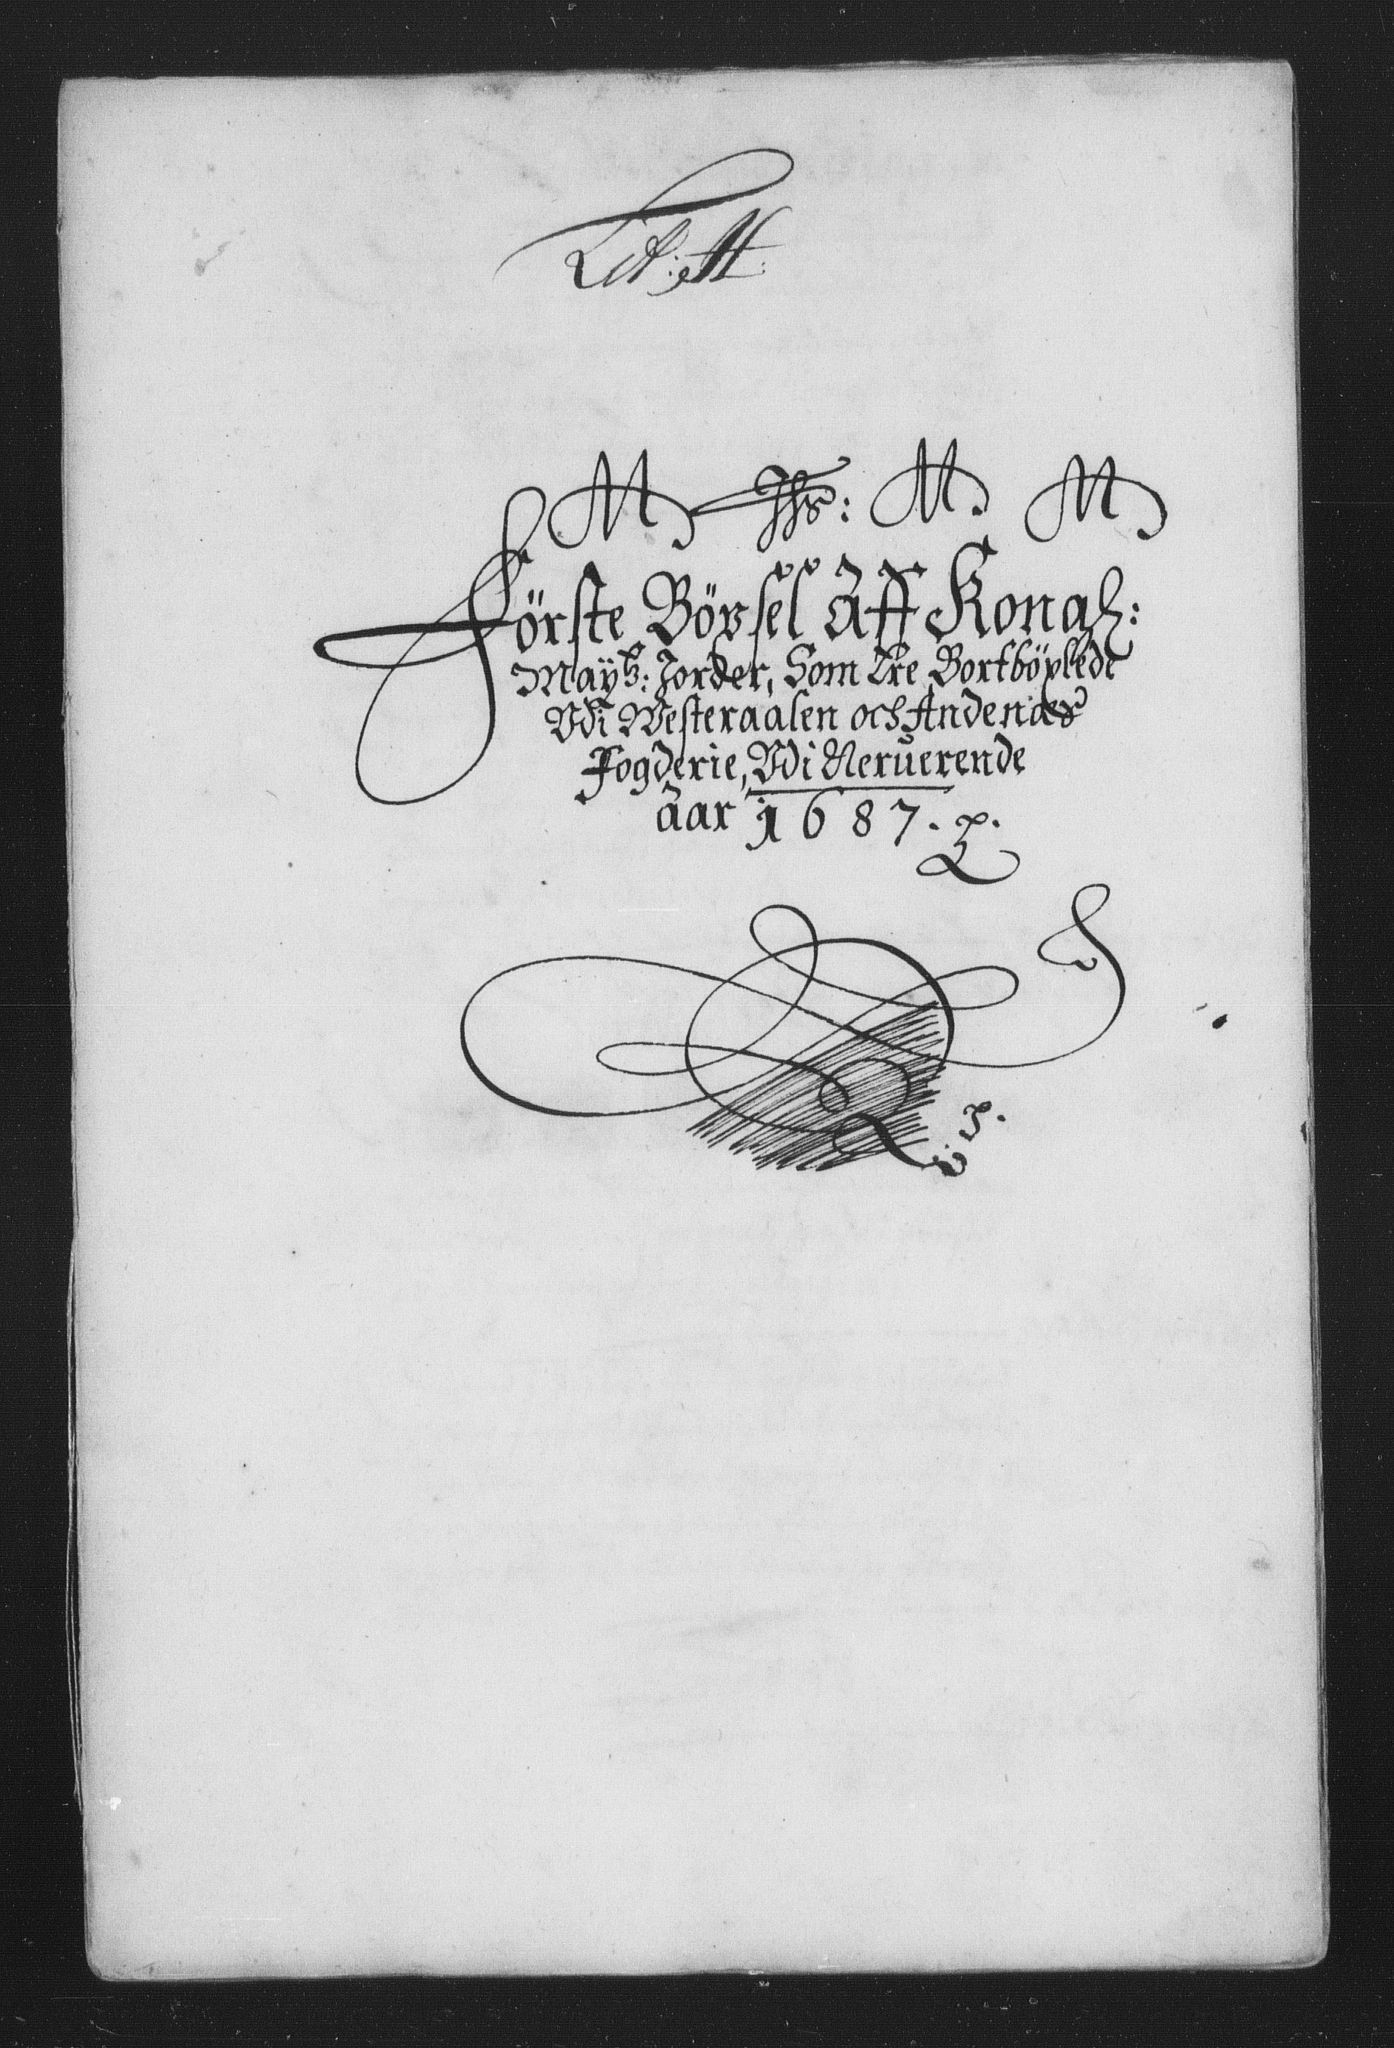 Lit: H:
Ihs:
Förste Böysel Aff Kongl:
Mayts: Jorder, Som Ere Bortböxlede
Vdi Westeraalen och Andenæs
Fogderie, Vdi Neruerende
aar 1687.